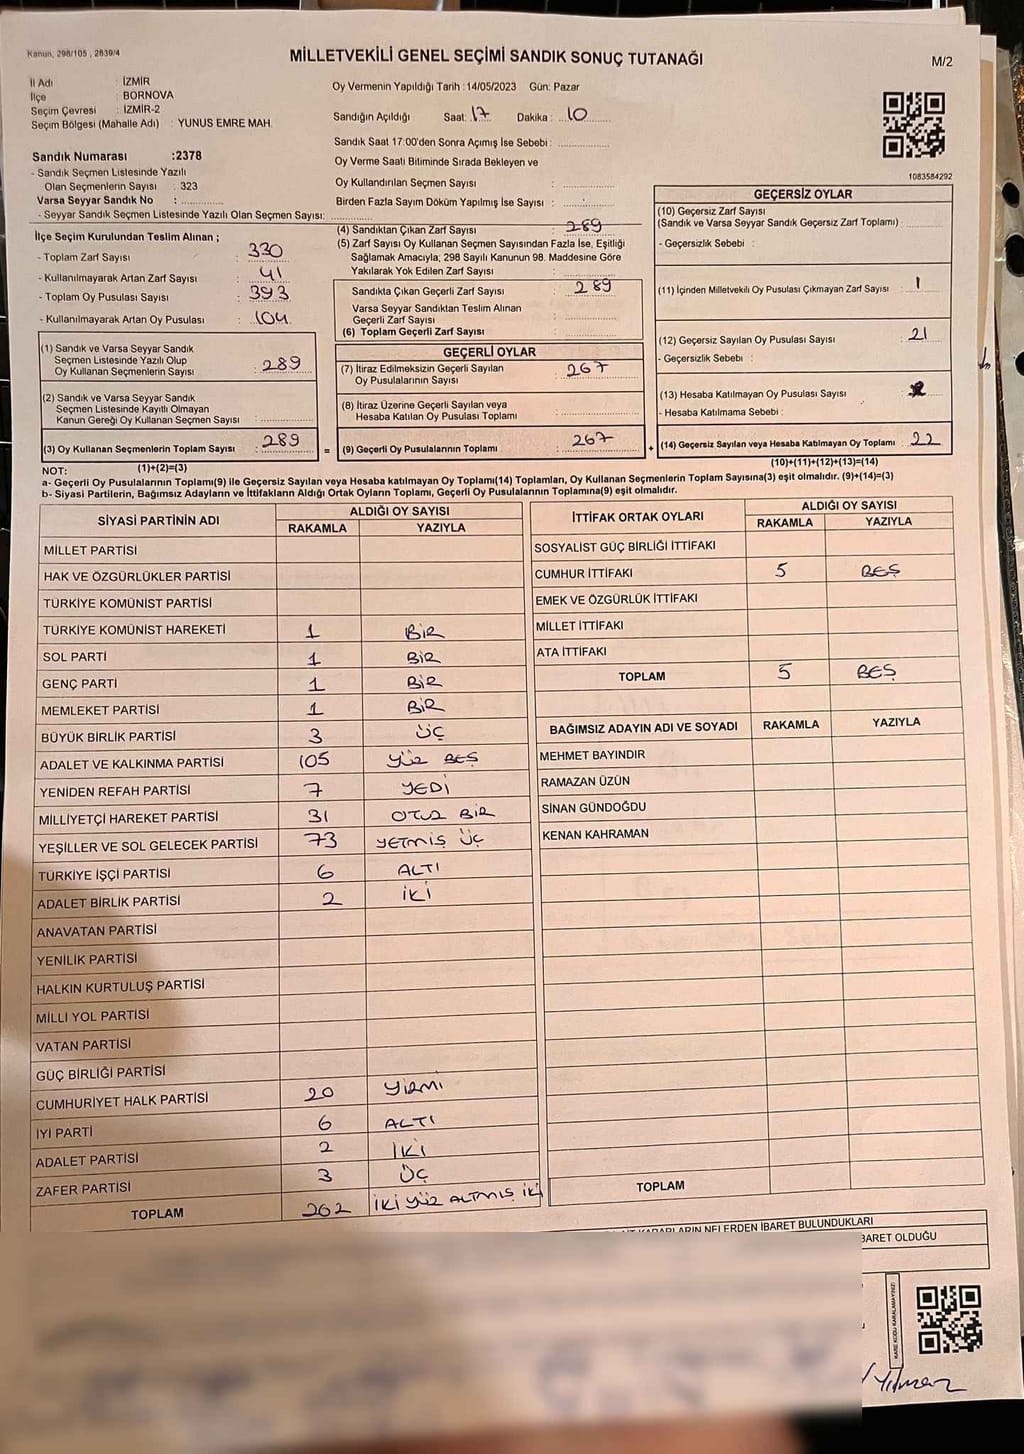 Kanun, 298/105 , 2839/4
MİLLETVEKİLİ GENEL SEÇİMİ SANDIK SONUÇ TUTANAĞI
M/2
İl Adı : İZMİR
İlçe : BORNOVA
Seçim Çevresi : İZMİR-2
Seçim Bölgesi (Mahalle Adı) : YUNUS EMRE MAH.
Oy Vermenin Yapıldığı Tarih :14/05/2023 Gün: Pazar
Sandığın Açıldığı Saat: 17 Dakika : 10
Sandık Saat 17:00'den Sonra Açımış İse Sebebi :
Oy Verme Saati Bitiminde Sırada Bekleyen ve
Oy Kullandırılan Seçmen Sayısı :
Birden Fazla Sayım Döküm Yapılmış İse Sayısı :
1083584292
Sandık Numarası :2378
- Sandık Seçmen Listesinde Yazılı
Olan Seçmenlerin Sayısı : 323
Varsa Seyyar Sandık No :
- Seyyar Sandık Seçmen Listesinde Yazılı Olan Seçmen Sayısı:
İlçe Seçim Kurulundan Teslim Alınan ;
- Toplam Zarf Sayısı : 330
- Kullanılmayarak Artan Zarf Sayısı : 41
- Toplam Oy Pusulası Sayısı : 393
- Kullanılmayarak Artan Oy Pusulası : 104
(1) Sandık ve Varsa Seyyar Sandık
Seçmen Listesinde Yazılı Olup
Oy Kullanan Seçmenlerin Sayısı : 289
(2) Sandık ve Varsa Seyyar Sandık
Seçmen Listesinde Kayıtlı Olmayan
Kanun Gereği Oy Kullanan Seçmen Sayısı :
(3) Oy Kullanan Seçmenlerin Toplam Sayısı : 289
(1)+(2)=(3)
(4) Sandıktan Çıkan Zarf Sayısı : 289
(5) Zarf Sayısı Oy Kullanan Seçmen Sayısından Fazla İse, Eşitliği
Sağlamak Amacıyla; 298 Sayılı Kanunun 98. Maddesine Göre
Yakılarak Yok Edilen Zarf Sayısı :
Sandıkta Çıkan Geçerli Zarf Sayısı : 289
Varsa Seyyar Sandıktan Teslim Alınan
Geçerli Zarf Sayısı :
(6) Toplam Geçerli Zarf Sayısı :
GEÇERLİ OYLAR
(7) İtiraz Edilmeksizin Geçerli Sayılan
Oy Pusulalarının Sayısı : 267
(8) İtiraz Üzerine Geçerli Sayılan veya
Hesaba Katılan Oy Pusulası Toplamı :
= (9) Geçerli Oy Pusulalarının Toplamı : 267 +
GEÇERSİZ OYLAR
(10) Geçersiz Zarf Sayısı
(Sandık ve Varsa Seyyar Sandık Geçersiz Zarf Toplamı) :
- Geçersizlik Sebebi :
(11) İçinden Milletvekili Oy Pusulası Çıkmayan Zarf Sayısı : 1
(12) Geçersiz Sayılan Oy Pusulası Sayısı : 21
- Geçersizlik Sebebi :
(13) Hesaba Katılmayan Oy Pusulası Sayısı :
- Hesaba Katılmama Sebebi :
(14) Geçersiz Sayılan veya Hesaba Katılmayan Oy Toplamı : 22
(10)+(11)+(12)+(13)=(14)
NOT:
a- Geçerli Oy Pusulalarının Toplamı(9) ile Geçersiz Sayılan veya Hesaba katılmayan Oy Toplamı(14) Toplamları, Oy Kullanan Seçmenlerin Toplam Sayısına(3) eşit olmalıdır. (9)+(14)=(3)
b- Siyasi Partilerin, Bağımsız Adayların ve İttifakların Aldığı Ortak Oyların Toplamı, Geçerli Oy Pusulalarının Toplamına(9) eşit olmalıdır.
SİYASİ PARTİNİN ADI ALDIĞI OY SAYISI
RAKAMLA YAZIYLA
MİLLET PARTİSİ
HAK VE ÖZGÜRLÜKLER PARTİSİ
TÜRKİYE KOMÜNİST PARTİSİ
TÜRKİYE KOMÜNİST HAREKETİ 1 BİR
SOL PARTİ 1 BİR
GENÇ PARTİ 1 BİR
MEMLEKET PARTİSİ 1 BİR
BÜYÜK BİRLİK PARTİSİ 3 ÜÇ
ADALET VE KALKINMA PARTİSİ 105 YÜZ BEŞ
YENİDEN REFAH PARTİSİ 7 YEDİ
MİLLİYETÇİ HAREKET PARTİSİ 31 OTUZ BİR
YEŞİLLER VE SOL GELECEK PARTİSİ 73 YETMİŞ ÜÇ
TÜRKİYE İŞÇİ PARTİSİ 6 ALTI
ADALET BİRLİK PARTİSİ 2 İKİ
ANAVATAN PARTİSİ
YENİLİK PARTİSİ
HALKIN KURTULUŞ PARTİSİ
MİLLİ YOL PARTİSİ
VATAN PARTİSİ
GÜÇ BİRLİĞİ PARTİSİ
CUMHURİYET HALK PARTİSİ 20 YİRMİ
İYİ PARTİ 6 ALTI
ADALET PARTİSİ 2 İKİ
ZAFER PARTİSİ 3 ÜÇ
TOPLAM 262 İKİ YÜZ ALTMIŞ İKİ
İTTİFAK ORTAK OYLARI ALDIĞI OY SAYISI
RAKAMLA YAZIYLA
SOSYALİST GÜÇ BİRLİĞİ İTTİFAKI
CUMHUR İTTİFAKI 5 BEŞ
EMEK VE ÖZGÜRLÜK İTTİFAKI
MİLLET İTTİFAKI
ATA İTTİFAKI
TOPLAM 5 BEŞ
BAĞIMSIZ ADAYIN ADI VE SOYADI RAKAMLA YAZIYLA
MEHMET BAYINDIR
RAMAZAN ÜZÜN
SİNAN GÜNDOĞDU
KENAN KAHRAMAN
TOPLAM
NELERDEN İBARET BULUNDUKLARI
BARET OLDUĞU
KARE KODU KARALAMAYINIZ!
Yılmaz